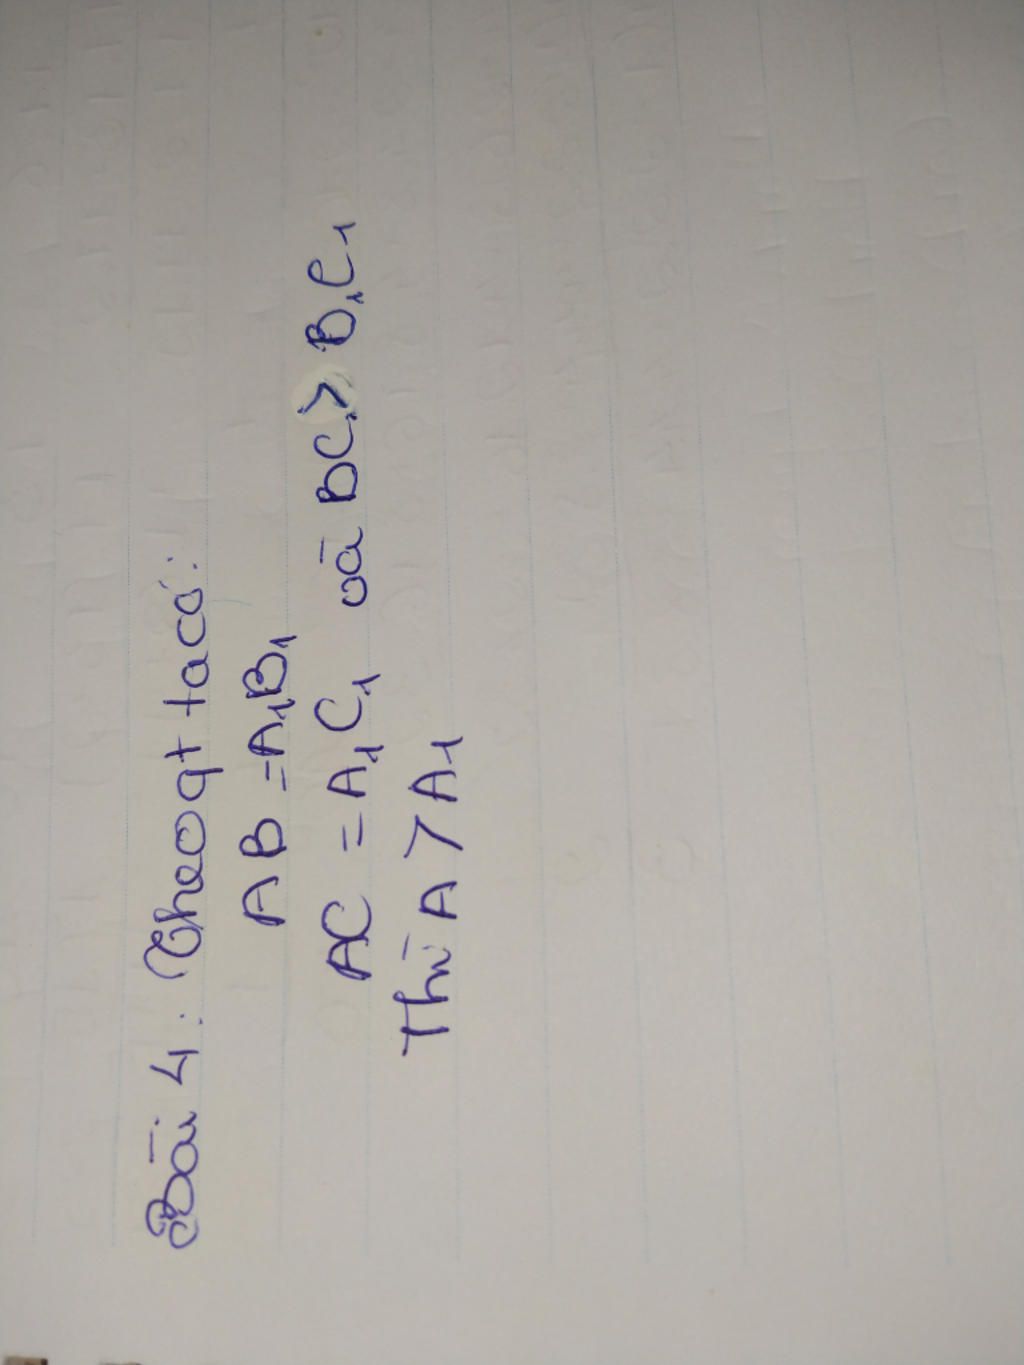 Bài 4: Theo qt ta có:
AB = A₁B₁
AC = A₁C₁ và BC > B₁C₁
Thì A > A₁